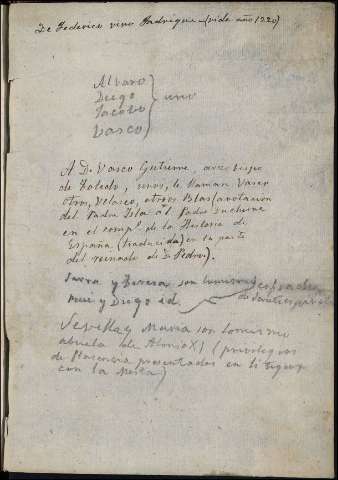 De Federico vino Fadrique (vide año 1220)
Alvaro
Diego
Jacobo
Vasco
uno
A D. Vasco Gutierre, arzobispo
de Toledo, unos, le llaman Vasco
otros, Velasco, otros Blas (anotacion
del Padre Isla al Padre Duchesne
en el comp.º de la Historia de
España (traducida) en la parte
del reinado de D. Pedro).
y Teresa son lo mismo
Rui y Diego id
Sevilla y Maria son lo mismo
abuela de Alonso XI (privilegios
de Plasencia presentados en litigio
con la Mesta)